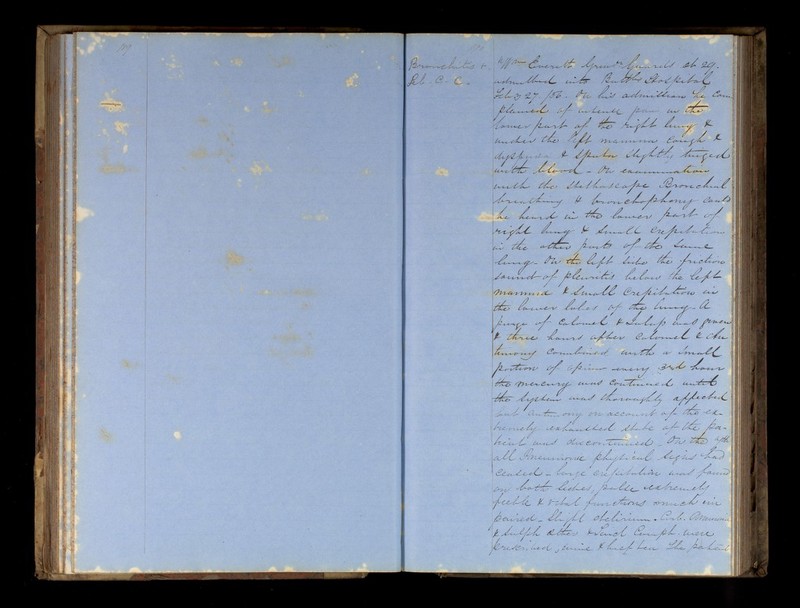 Bronchitis &
Wm Everett Grenr Guards æt 29.
admitted into Hospital
Feby 27 /56. On his admission he com
plained of intense pain in the
lower part of the right lung &
under the left mamma cough &
dyspnœa & sputa slightly tinged
with blood. On examination
with the stethoscope Bronchial
breathing & bronchophony could
be heard in the lower part of
right lung & small crepitation
in the other parts of the same
lung. On the left side the friction
sound of pleuritis below the left
mamma & small crepitation in
the lower lobes of the lung. A
purge of calomel & Julep was given
& three hours after calomel &
combined with a small
portion of opium every 3rd hour
the mercury was continued until
the system was thoroughly affected
but antimony on account of the ex-
tremely exhausted state of the pa-
tient was discontinued. On the 4th
all Pneumonic physical signs had
ceased - large crepitation was found
on both sides, pulse extremely
feeble & vital functions much im
paired - Slight delirium. Carb. Ammon
& Sulph Æther & Camph. were
prescribed, wine & beef tea. The patient